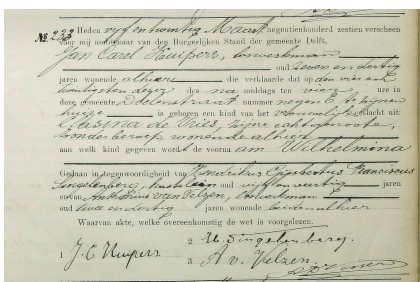 № 233 Heden vyf en twintig Maart negentienhonderd zestien verscheen
voor mij ambtenaar van den Burgerlijken Stand der gemeente Delft,
Jan Carel Kuipers,
oud zeven en dertig
jaren wonende alhier die verklaarde dat op den vier en
twintigsten dezer des na middags ten vier ure in
deze gemeente Doelenstraat nummer negen te zijnen
huize is geboren een kind van het vrouwelijk geslacht uit:
de Vries, zijne echtgenoote,
zonder beroep wonende alhier
aan welk kind gegeven wordt de voornaam Wilhelmina
Gedaan in tegenwoordigheid van Hendrikus Franciscus
Singelenberg, oud vijf en veertig jaren
en van Antonius van Velzen, werkman
oud en dertig jaren wonende beiden alhier
Waarvan akte, welke overeenkomstig de wet is voorgelezen.
1 J. C. Kuipers 2 H. Singelenberg.
3 A v. Velzen.